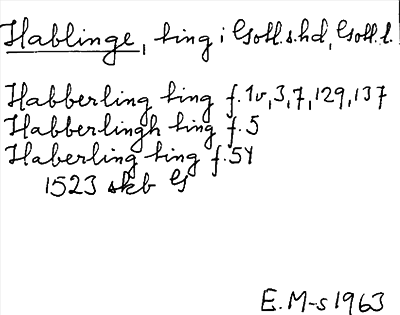 Hablinge, ting i Gotl.s.hd, Gotl.l.
Habberling ting f.1v,3,7,129,137
Habberlingh ting f.5
Haberling ting f.54
1523 skb G
E.M-s 1963